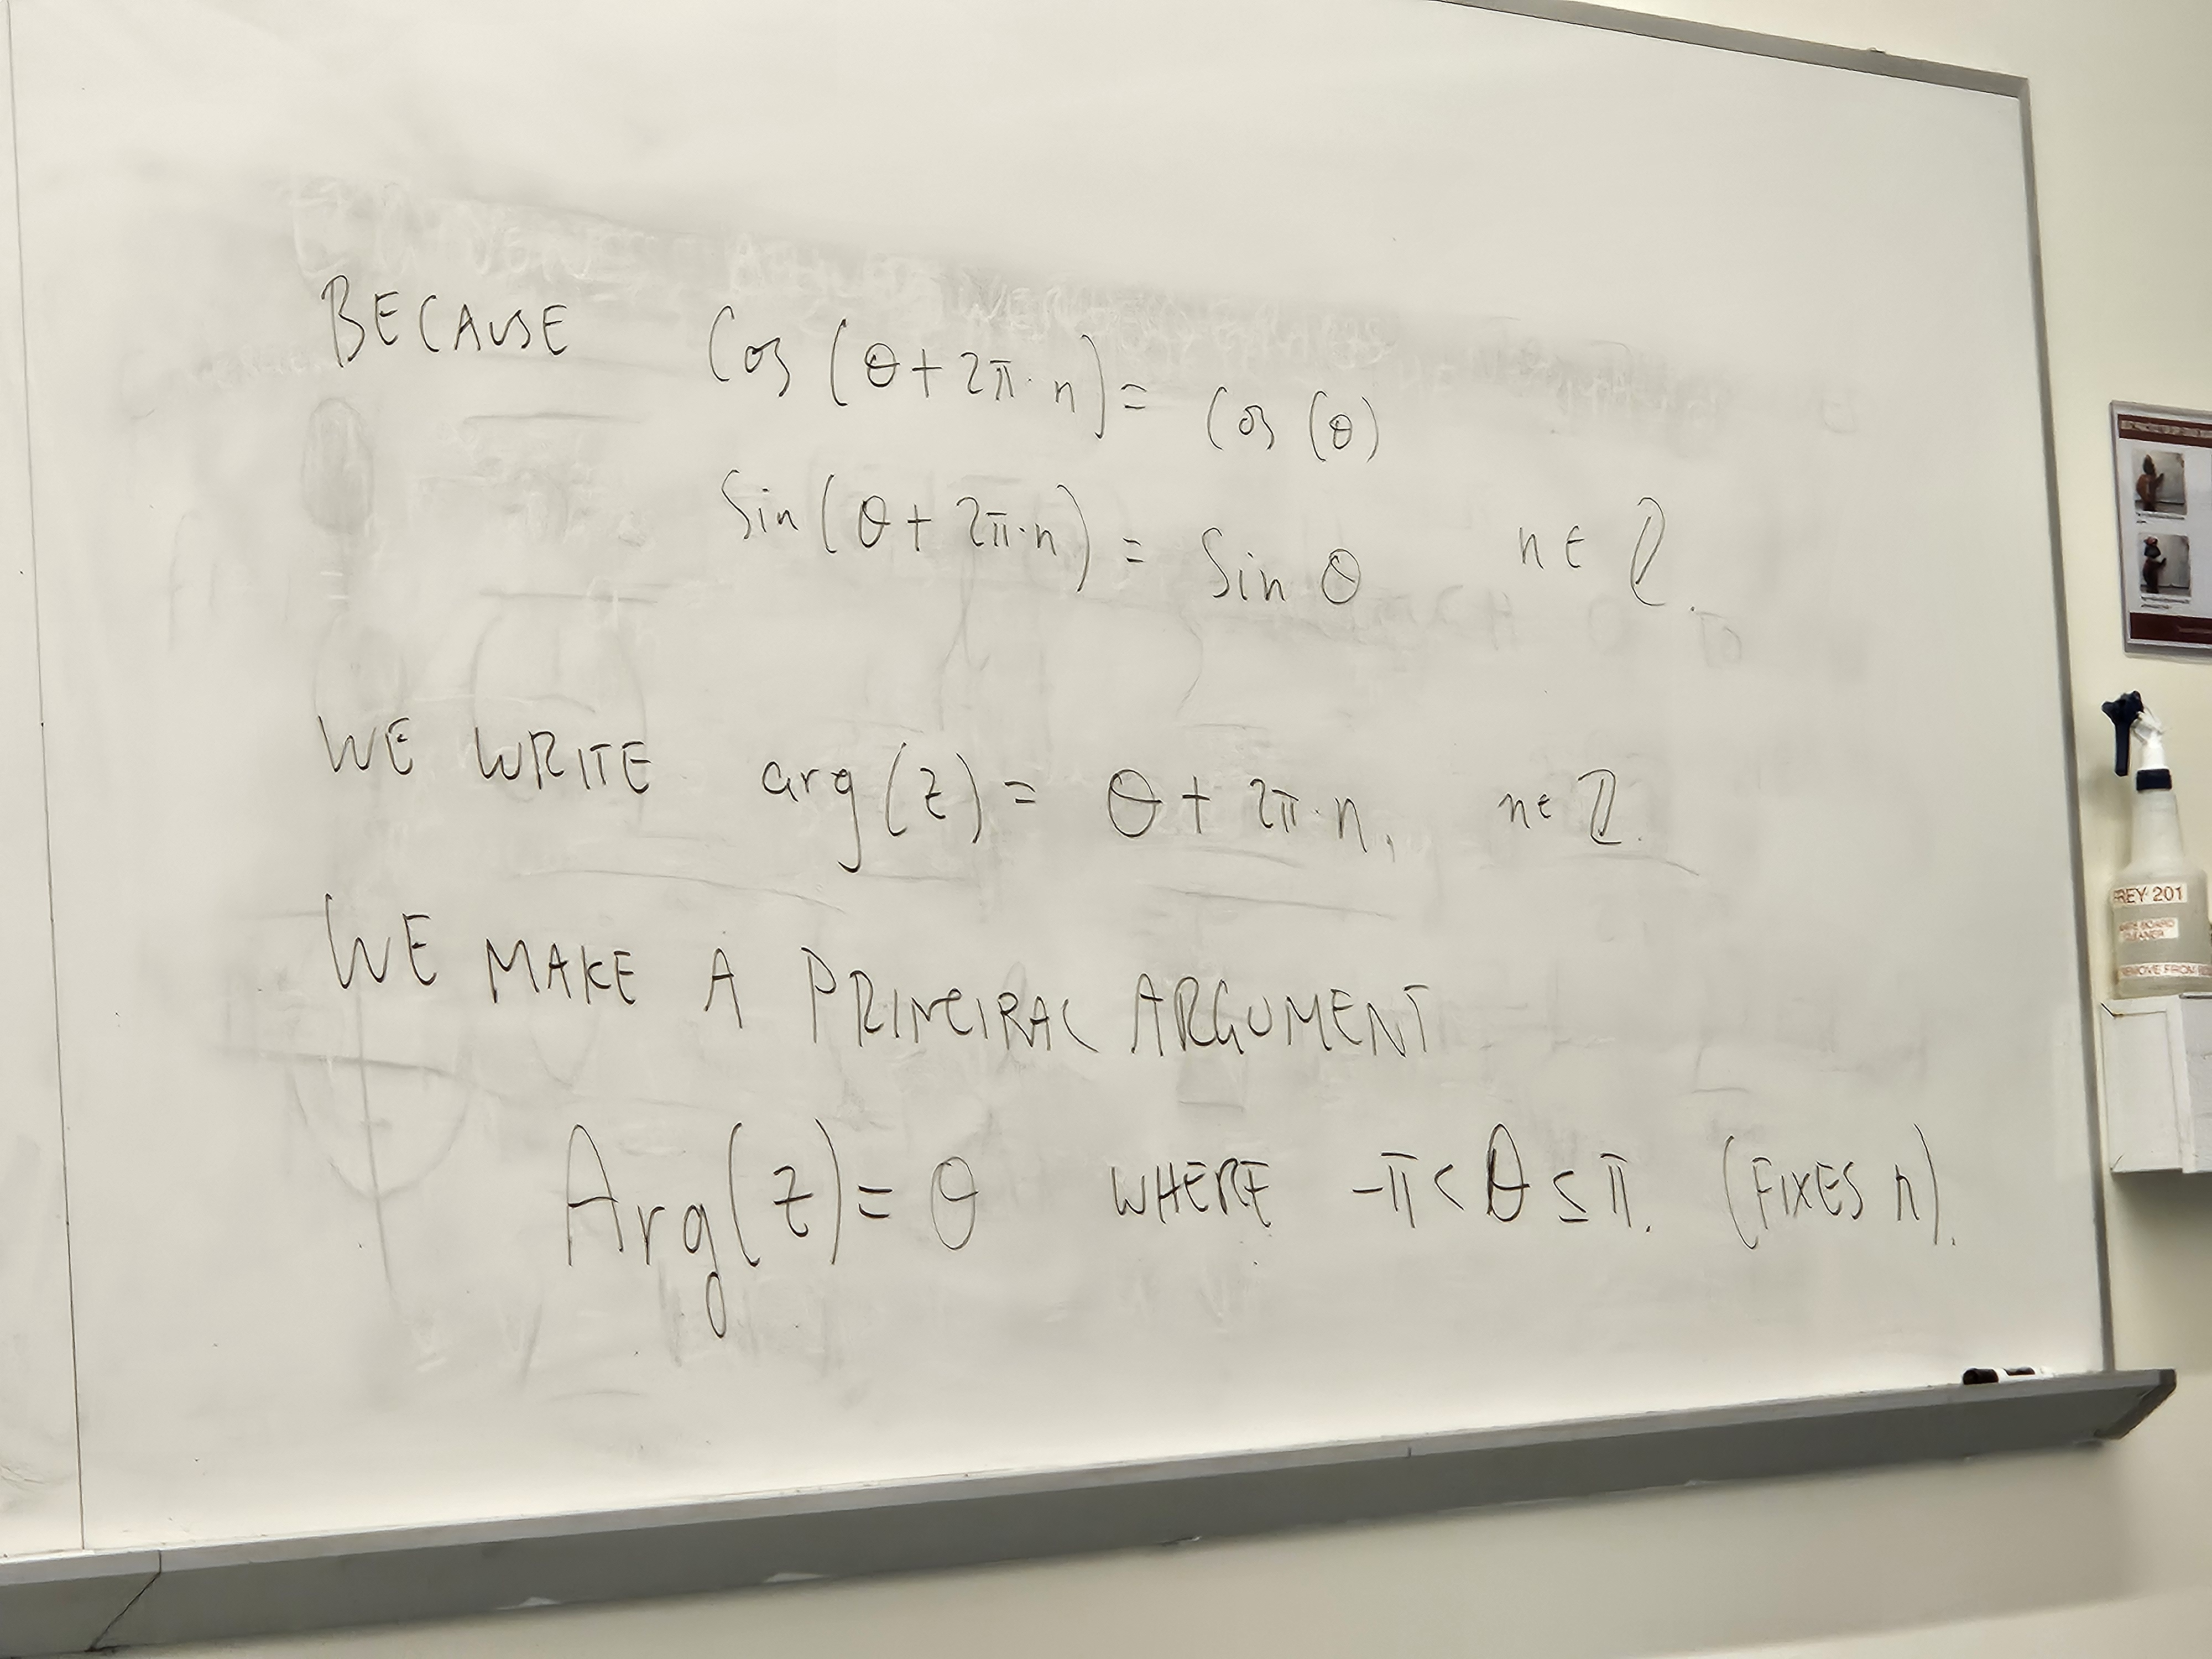 BECAUSE Cos (θ + 2π · n) = Cos (θ)
Sin (θ + 2π · n) = Sin θ n ∈ ℤ.
WE WRITE arg(z) = θ + 2π · n, n ∈ ℤ.
WE MAKE A PRINCIPAL ARGUMENT
Arg(z) = θ WHERE -π < θ ≤ π. (FIXES n).
FREY 201
CLEANER
REMOVE FROM